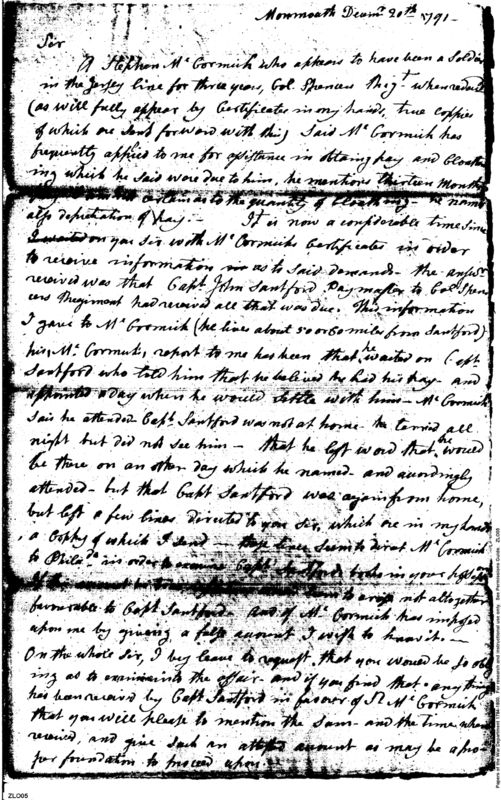 Monmouth Decemr 20th 1791-
Sir
A Stephen Mc Cormick who appears to have been a Soldier
in the Jersey line for three years, Col. Spencers Regt when reduced
(as will fully appear by Certificates in my hands, true coppies
of which are sent forword with this) Said Mc Cormick has
frequently applied to me for assistance in obtaing pay and Cloath-
ing which he said were due to him, he mentions thirteen Months
certain as to the quantity of Cloathing - he names
also depretiation of pay. - It is now a considerable time since
I waited on you Sir with Mc Cormicks Certificates in order
to receive information as to said demands - the answer
received was that Capt John Santford Paymaster to Col Spen-
cers Regiment had received all that was due. This information
I gave to Mc Cormick (he lives about 50 or 60 miles from Santford)
his, Mc Cormicks, report to me has been that he waited on Capt
Santford who told him that he believed he had his pay - and
appointed a day when he would settle with him - Mc Cormick
Said he attended Capt Santford was not at home - he tarried all
night but did not see him - that he left word that he would
be there on an other day which he named - and accordingly
attended - but that Capt Santford was again from home,
but left a few lines directed to you Sir, which are in my hands
a Cophy of which I send - these lines seem to direct Mc Cormick
to Philada in order to examine Capt Santfords books in your
not altogether
favourable to Capt Santford - And if Mc Cormick has imposed
upon me by giving a false account I wish to know it -
On the whole Sir, I beg leave to request, that you would be so oblig-
ing as to examine into the affair - and if you find that any thing
has been received by Capt Santford in favour of St Mc Cormick
that you will please to mention the Sum - and the time when
received, and give such an attested account as may be a pro-
per foundation to proceed upon
ZLO05